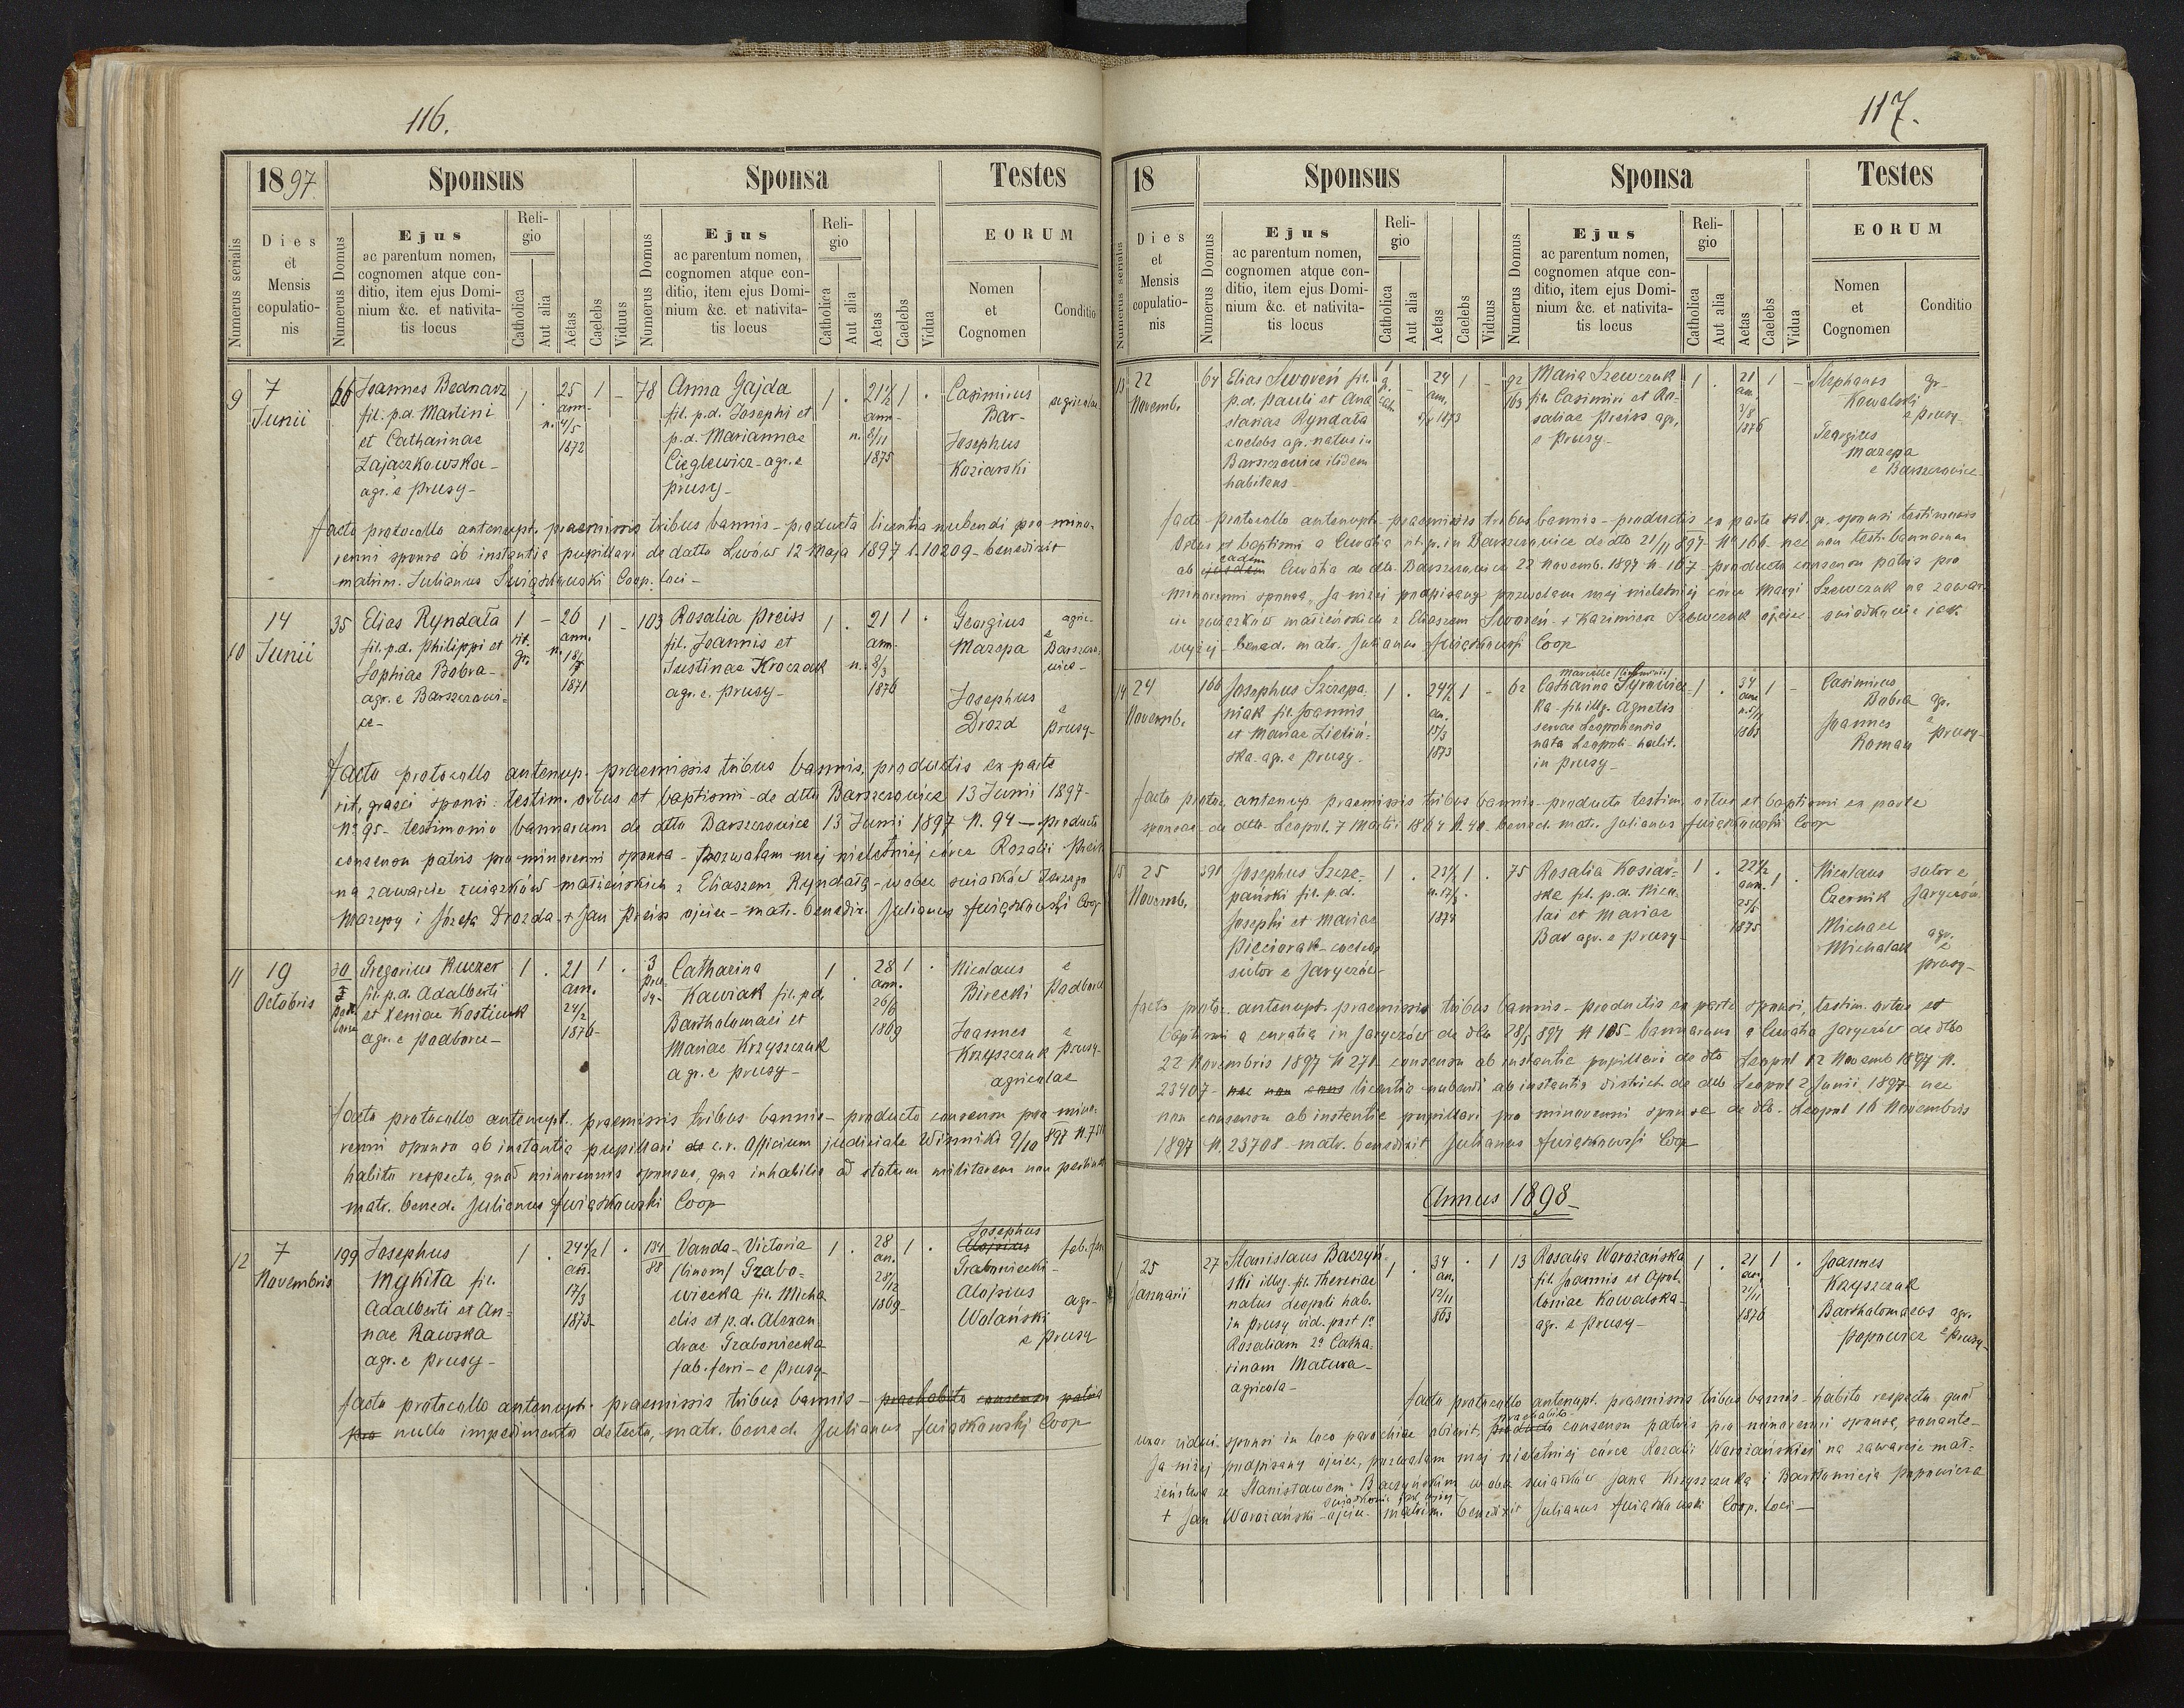 116.
1897.
Sponsus
Sponsa
Testes
Numerus serialis
Dies
et
Mensis
copulatio-
nis
Numerus Domus
Ejus
ac parentum nomen,
cognomen atque con-
ditio, item ejus Domi-
nium &c. et nativita-
tis locus
Reli-
gio
Catholica
Aut alia
Aetas
Caelebs
Viduus
Numerus Domus
Ejus
ac parentum nomen,
cognomen atque con-
ditio, item ejus Domi-
nium &c. et nativita-
tis locus
Reli-
gio
Catholica
Aut alia
Aetas
Caelebs
Vidua
EORUM
Nomen
et
Cognomen
Conditio
9
7
Junii
66
Joannes Bednarz
fil. p.d. Martini
et Catharinae
Zajaczkowska-
agr. e Prusy-
1 .
25
ann.
n. 4/5
1872
1 -
78
Anna Gajda
fil. p.d. Josephi et
p.d. Mariannae
Cieglewicz - agr. e
Prusy-
1 .
21 1/2
ann-
n. 8/11
1875
1 .
Casimirus
Bar-
Josephus
Koziarski
agricolae
facto protocollo antenupt. praemissis tribus bannis - producta licentia nubendi pro mino-
renni sponsa ab instantia pupillari de datto Lwów 12 Maja 1897 l. 10209 - benedixit
matrim. Julianus Swiązkowski Coop. loci-
10
14
Junii
35
Elias Ryndała
fil. p.d. Philippi et
Sophiae Bobra-
agr. e Barszczowi-
ce-
1 -
rit.
gr.
26
ann.
n. 18/7
1871
1 -
103
Rosalia Preiss
fil. Joannis et
Justinae Kroczak
agr. e. Prusy-
1 .
21
ann-
n. 8/3
1876
1 .
Georgius
Mazepa
agric-
e
Barszczo-
wice-
Josephus
Drozd
e
Prusy-
facto protocollo antenup. praemissis tribus bannis, productis ex parte
rit. graeci sponsi: testim. ortus et baptismi - de dtto Barszczowice 13 Junii 1897-
No 95- testimonio bannorum de dtto Barszczowice 13 Junii 1897 N. 94 - producto
consensu patris pro minorenni sponsa - Pozwalam mej nieletniej córce Rozalii Preiss
na zawarcie związków małżeńskich z Eliaszem Ryndałą - wobec świadków Jerzego
Mazepy i Józefa Drozda - + Jan Preiss ojciec - matr. benedix. Julianus Swiązkowski Coop
11
19
Octobris
Gregorius Ruczer
fil. p.d. Adalberti
et Xeniae Kostiuk
agr. e Padborce-
1 .
21
ann.
24/2
1876-
1 .
3
Pru-
sy-
Catharina
Kawiak fil. p.d.
Bartholomaei et
Mariae Krzyszczuk
agr. e Prusy-
1 .
28
ann.
26/6
1869
1 .
Nicolaus
Birecki
e
Padborce
Joannes
Krzyszczuk
e
Prusy-
agricolae
facto protocollo antenupt. praemissis tribus bannis - producto consensu pro mino-
renni sponso ab instantia pupillari de c.r. Officium judiciale Winniki 9/10 897
habito respectu, quod minorennis sponsus, qua inhabilis ad statum militarem non pertinet
matr. bened. Julianus Swiązkowski Coop
12
7
Novembris
199
Josephus
Mykita fil.
Adalberti et An-
nae Rawska
agr. e Prusy-
1 .
24 1/2
an.
17/3
1873-
1 .
134
88
Vanda-Victoria
(binom) Grabo-
wiecka fil. Micha
elis et p.d. Alexan
drae Grabowiecka
fab. ferri - e Prusy-
1 .
28
an.
28/12
1869-
1 .
Josephus
Aloisius
Grabowiecki-
fab. fer
Aloisius
Wolański
agr-
e Prusy
facto protocollo antenupt. praemissis tribus bannis - praehabito consensu patris
pro nullo impedimento detecto, matr. bened. Julianus Swiązkowski Coop
117.
18
Sponsus
Sponsa
Testes
Numerus serialis
Dies
et
Mensis
copulatio-
nis
Numerus Domus
Ejus
ac parentum nomen,
cognomen atque con-
ditio, item ejus Domi-
nium &c. et nativita-
tis locus
Reli-
gio
Catholica
Aut alia
Aetas
Caelebs
Viduus
Numerus Domus
Ejus
ac parentum nomen,
cognomen atque con-
ditio, item ejus Domi-
nium &c. et nativita-
tis locus
Reli-
gio
Catholica
Aut alia
Aetas
Caelebs
Vidua
EORUM
Nomen
et
Cognomen
Conditio
13
22
Novemb.
64
Elias Sworeń fil.
p.d. Pauli et Ana
stasiae Ryndała
caelebs agr. natus in
Barszczowice ibidem
habitans-
1
g.
cath.
-
24
an.
1873
1 -
92
163
Maria Szewczuk
fil. Casimiri et Ro-
saliae Preiss agr.
e Prusy-
1 .
21
an.
3/8
1876
1 -
Stephanus
Kowalski
gr-
e Prusy-
Georgius
Mazepa
e Barszczowice-
facto protocollo antenupt. praemissis tribus bannis - productis ex parte rit. gr. sponsi testimonio
ortus et baptismi a Curatia rit. gr. in Barszczowice de dtto 21/11 897 - No 166 - nec non testi. bannorum
ab ejusdem eadem Curatia de dtto Barszczowice 22 Novemb. 1897 N. 167 - producto consensu patris pro
minorenni sponsa „Ja niżej podpisany pozwalam mej nieletniej córce Maryi Szewczuk na zawar-
cie związków małżeńskich z Eliaszem Sworeń - + Kazimierz Szewczuk ojciec - świadkowie jak
wyżej - bened. matr. Julianus Swiązkowski Coop
14
24
Novemb.
166
Josephus Szczepa-
niak fil. Joannis
et Mariae Zieliń-
ska. agr. e Prusy.
1 .
24 1/2
an.
15/3
1873
1 -
62
Catharina Syrowicz-
ka - fil. illeg. Agnetis
servae Leopoliensis
nata Leopoli - habit.
in Prusy-
1 .
34
ann
1863
1 -
Casimirus
Bobra
agr.
Joannes
Roman
e
Prusy-
facto protoc. antenup. praemissis tribus bannis - producto testim. ortus et baptismi ex parte
sponsae - de dtto - Leopol. 7 Martii 1864 N. 40 - bened. matr. Julianus Swiązkowski Coop
15
25
Novemb.
391
Josephus Szcze-
pański fil. p.d.
Josephi et Mariae
Pieciorak - caelebs
sutor e Jaryczów-
1 .
23 1/2
1874
1 .
75
Rosalia Kosiar-
ska fil. p.d. Nico-
lai et Mariae
Bar agr. e Prusy-
1 .
22 1/2
ann.
25/5
1875
1 .
Nicolaus
Czernik
sutor e
Jaryczów.
Michael
Michalak
agr.
e
Prusy-
facto proto- antenupt. praemissis tribus bannis - productis ex parte sponsi, testim. ortus et
baptismi a curatia in Jaryczów de dtto 28/5 897 N 105 - bannorum a Curatia Jaryczów de dtto
22 Novembris 1897 N 271 - consensu ab instantia pupillari de dto Leopol 12 Novemb 1897 N.
23407 - nec non cons licentia nubendi ab instantia district. de dtto Leopol 2 Junii 1897 nec
non consensu ab instantie pupillari pro minorenni sponsa de dtto - Leopol 16 Novembris
1897 N. 23708 - matr. benedixit Julianus Swiązkowski Coop
Annus 1898-
1
25
Januarii
27
Stanislaus Baczyń-
ski illeg. fil. Theresiae
natus Leopoli hab.
in Prusy vid. post 1o
Rosaliam 2o Catha-
rinam Matura-
agricola-
1 .
34
an.
12/11
863
. 1
13
Rosalia Worożańska
fil. Joannis et Apol-
loniae Kowalska-
agr. e Prusy-
1 .
21
an.
21/11
1876
1 .
Joannes
Krzyszczuk
Bartholomaeus
Popowicz
agr.
e Prusy-
facto protocollo antenupt. praemissis tribus bannis - habito respectu quod
uxor vidui - sponsi in loco parochiae obierit, producto praehabito consensu patris pro minorenni sponsa, sonante-
Ja niżej podpisany ojciec, pozwalam mej nieletniej córce Rozalii Worożańskiej na zawarcie mał-
żeństwa ze Stanisławem Baczyńskim wobec świadków Jana Krzyszczuka i Bartłomieja Popowicza
+ Jan Worożański - ojciec - świadkowie jak wyżej matrim. benedixit Julianus Swiązkowski Coop. loci-